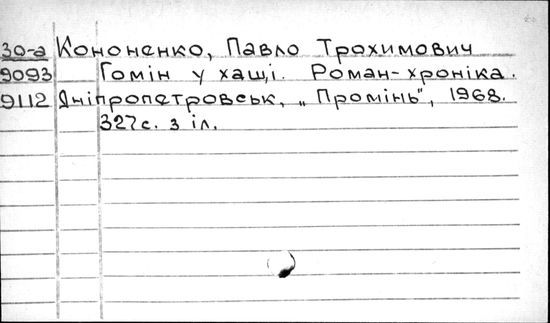 30-а Кононенко, Павло Трохимович
9093 Гомін у хащі. Роман-хроніка.
9112 Дніпропетровськ, „Промінь", 1968.
327с. з іл.